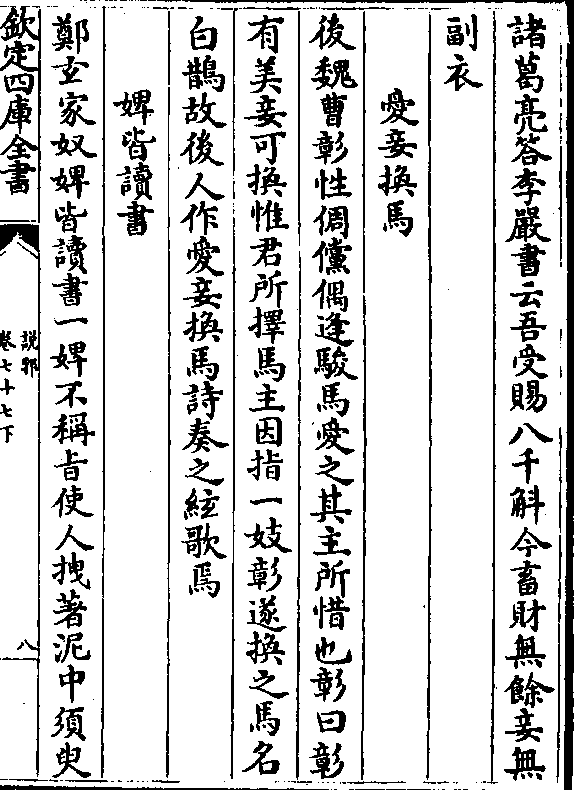 諸葛亮答李嚴書云吾受賜八千斛今畜財無餘妾無
副衣
愛妾換馬
後魏曹彰性倜儻偶逢駿馬愛之其主所惜也彰曰彰
有美妾可換惟君所擇馬主因指一妓彰遂換之馬名
白鵲故後人作愛妾換馬詩奏之絃歌焉
婢皆讀書
鄭玄家奴婢皆讀書一婢不稱旨使人拽著泥中須臾
欽定四庫全書
說郛
卷七十七下
八